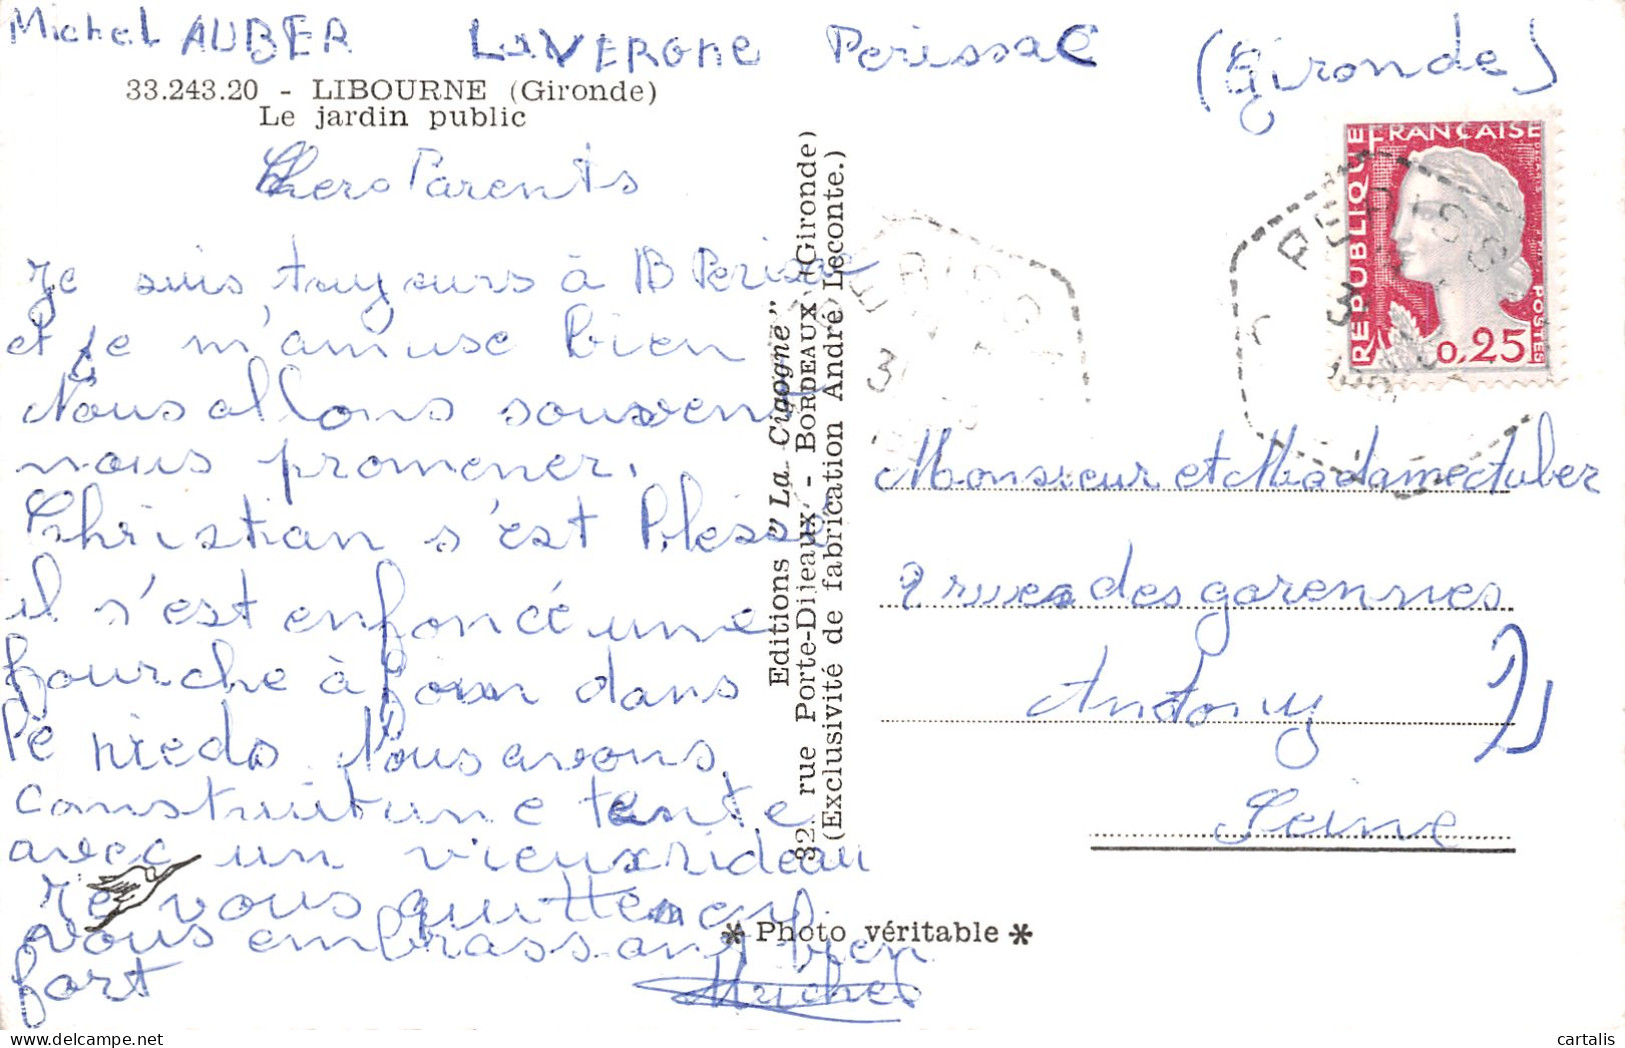 Michel AUBER LAVERGNE Perissac (Gironde)
33.243.20 - LIBOURNE (Gironde)
Le jardin public
Chers Parents
Je suis toujours à Perissac
et je m'amuse bien
Nous allons souvent
nous promener.
Christian s'est blessé
il s'est enfoncé une
fourche à foin dans
le pieds Nous avons
construit une tente
avec un vieux rideau
Je vous quitte en
vous embrassant bien
fort
Michel
Editions "La Cigogne"
32. rue Porte-Dijeaux - BORDEAUX (Gironde)
(Exclusivité de fabrication André Leconte.)
* Photo véritable *
REPUBLIQUE FRANÇAISE
DECARIS
POSTES
0,25
Monsieur et Madame Auber
9 rue des garennes
Antony
Seine
cartalis